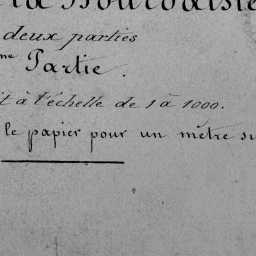 deux parties
me Partie.
à l'échelle de 1 à 1000.
le papier pour un mètre su